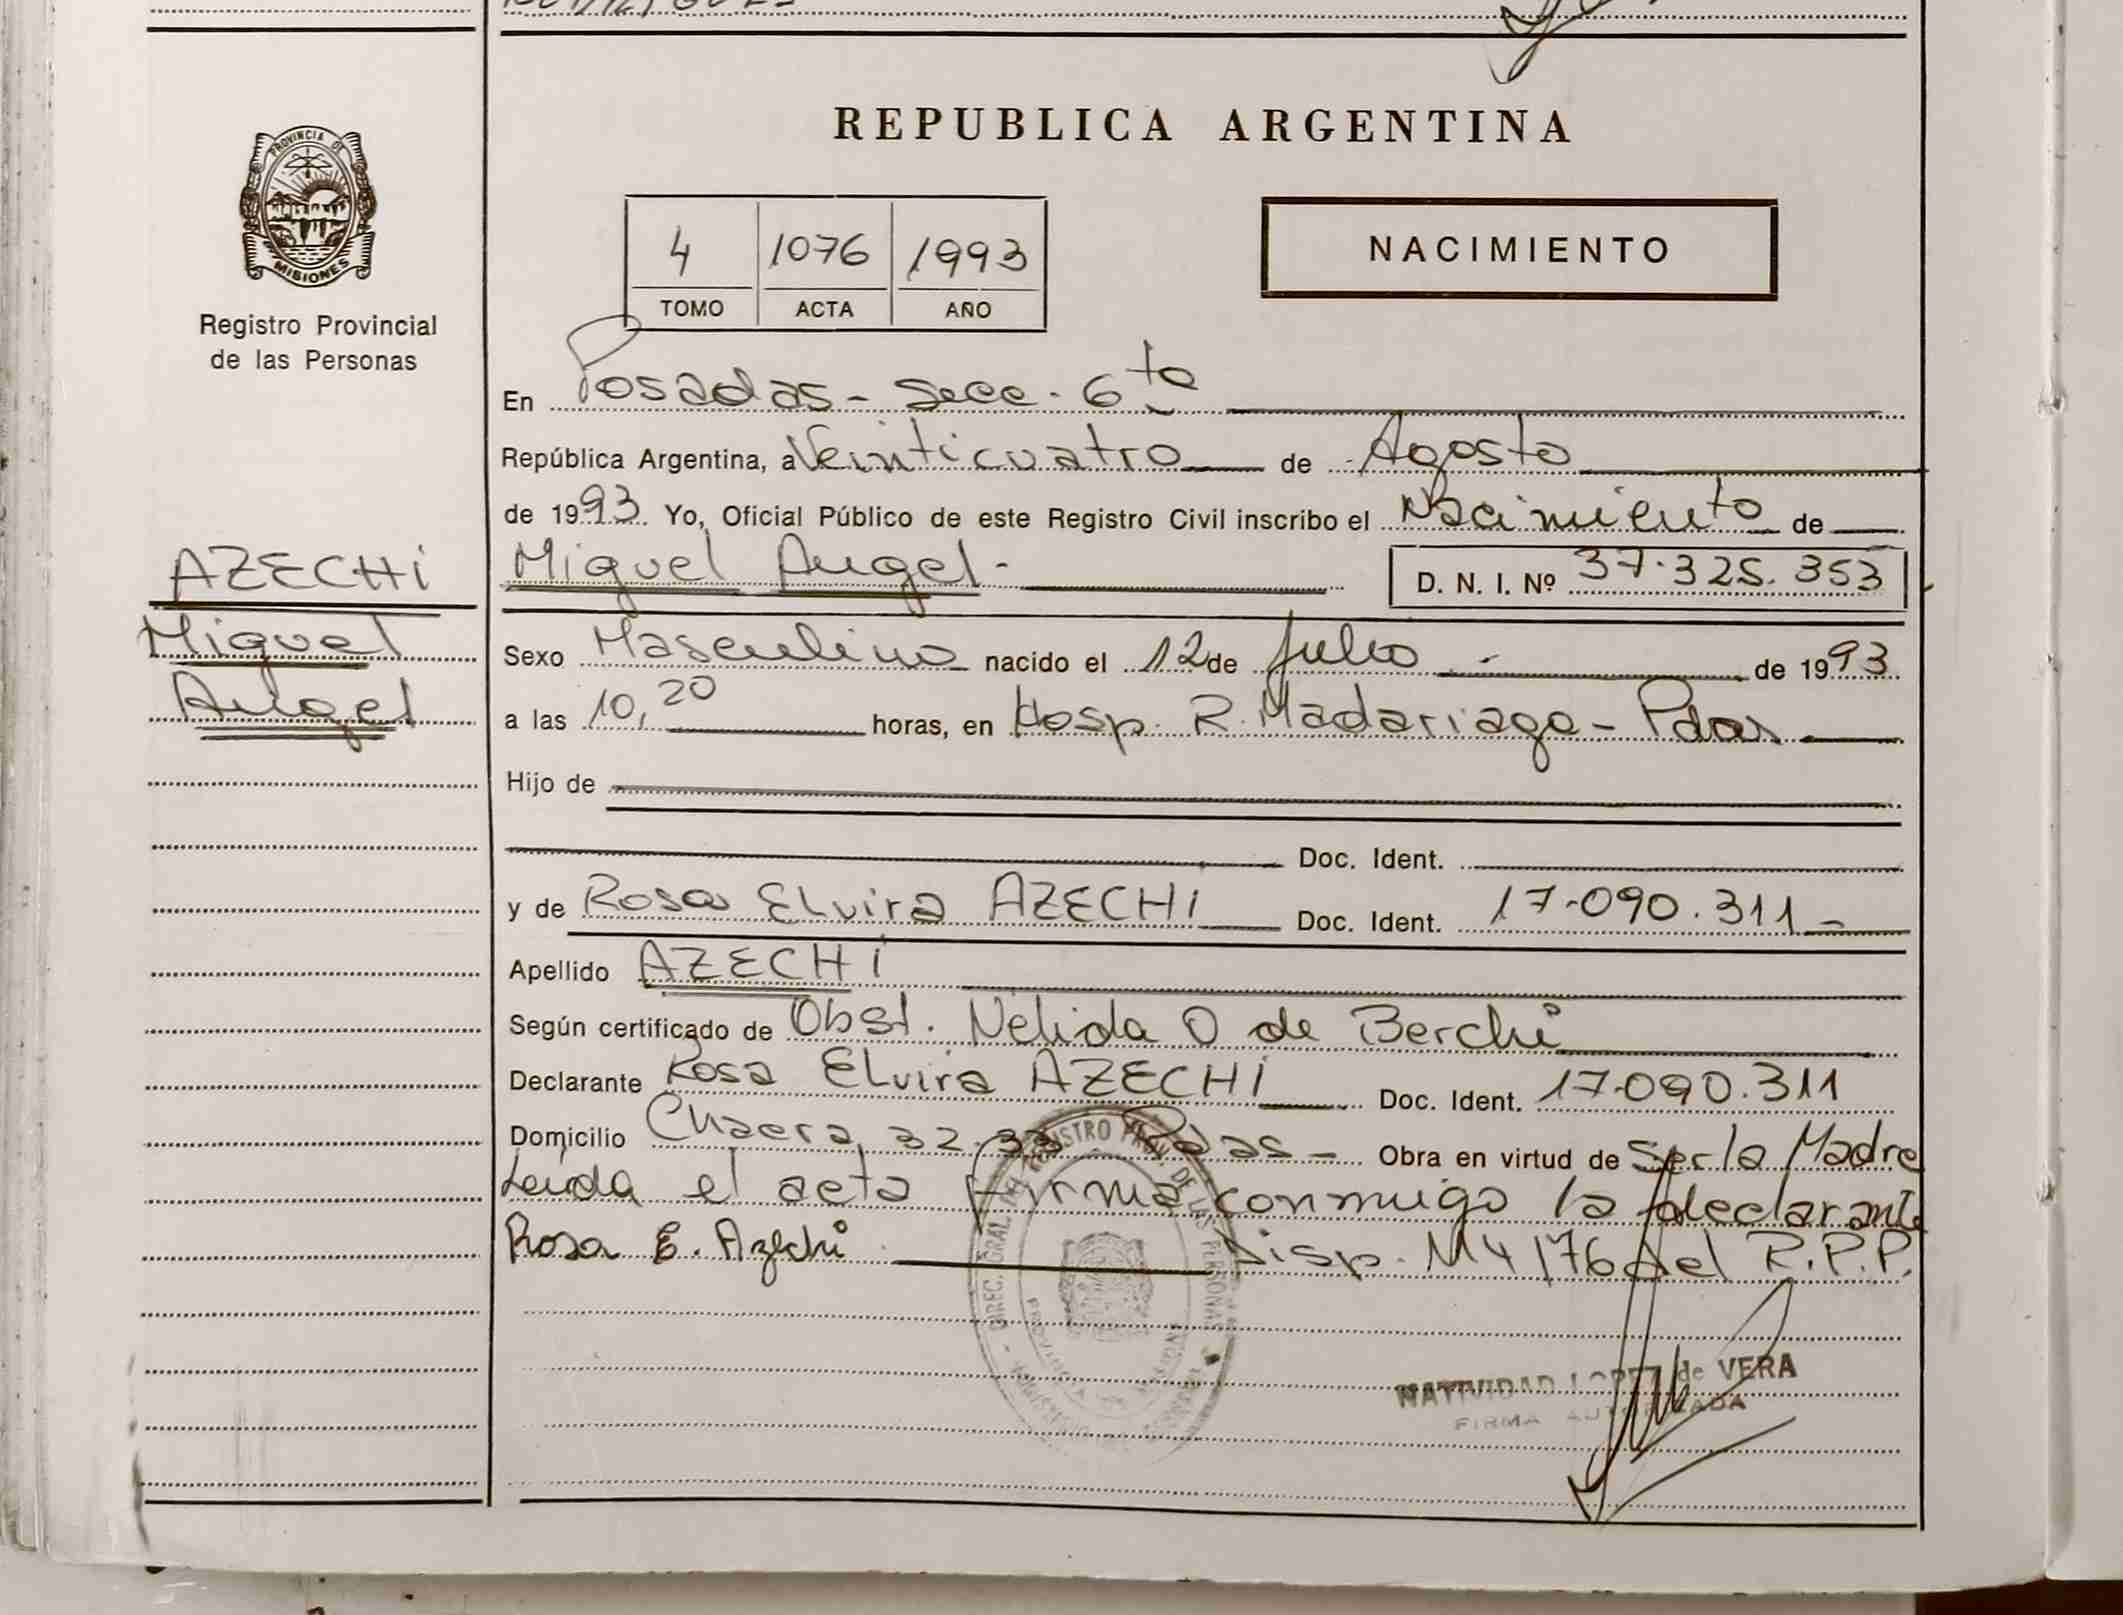 REPUBLICA ARGENTINA
PROVINCIA DE
MISIONES
Registro Provincial
de las Personas
4 1076 1993
TOMO ACTA AÑO
NACIMIENTO
En Posadas - Secc. 6ta
República Argentina, a Veinticuatro de Agosto
de 1993. Yo, Oficial Público de este Registro Civil inscribo el Nacimiento de
AZECHI
Miguel
Angel
Miguel Angel. D. N. I. Nº 37.325.353
Sexo Masculino nacido el 12 de Julio de 1993
a las 10,20 horas, en Hosp. R. Madariaga - Pdas
Hijo de
Doc. Ident.
y de Rosa Elvira AZECHI Doc. Ident. 17.090.311
Apellido AZECHI
Según certificado de Obst. Nélida O de Berchi
Declarante Rosa Elvira AZECHI Doc. Ident. 17.090.311
Domicilio Chacra 32-33 Pdas - Obra en virtud de Ser la Madre
Leida el acta firma conmigo la declarante
Rosa E. Azechi Disp. M4/76 del R.P.P.
DIREC. GRAL. DEL REGISTRO PROV. DE LAS PERSONAS
NATIVIDAD LOPEZ de VERA
FIRMA AUTORIZADA